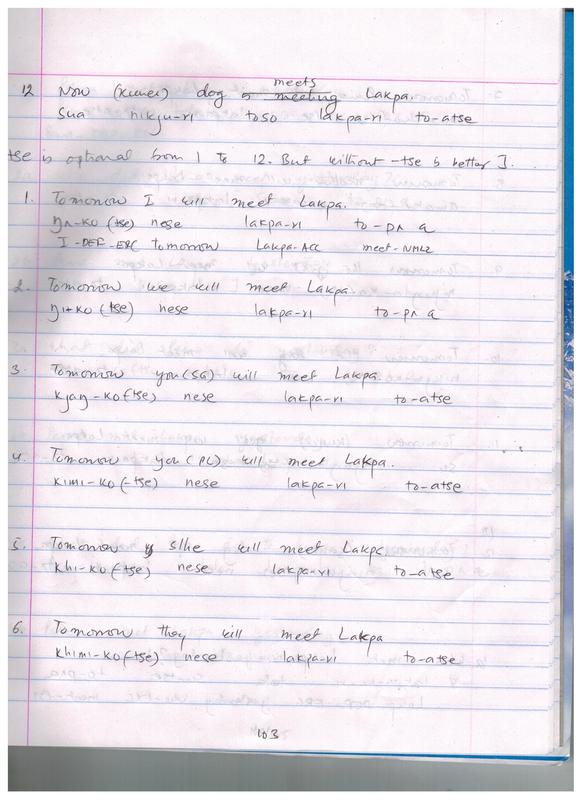 meets
12 Now (Kunes) dog is meeting Lakpa.
sua nikju-ri toso lakpa-ri to-atse
tse is optional from 1 to 12. But without -tse is better ].
1. Tomorrow I will meet Lakpa.
ŋʌ-ko (tse) nese lakpa-ri to-pʌ a
I-DEF-ERG tomorrow Lakpa-ACC meet-NMLZ
2. Tomorrow we will meet Lakpa.
ŋi+ko (tse) nese lakpa-ri to-pʌ a
3. Tomorrow you (SG) will meet Lakpa.
kjaŋ-ko(-tse) nese lakpa-ri to-atse
4. Tomorrow you (PL) will meet Lakpa.
kimi-ko(-tse) nese lakpa-ri to-atse
5. Tomorrow s/he will meet Lakpa
khi-ko(-tse) nese lakpa-ri to-atse
6. Tomorrow they will meet Lakpa
khimi-ko(-tse) nese lakpa-ri to-atse
103